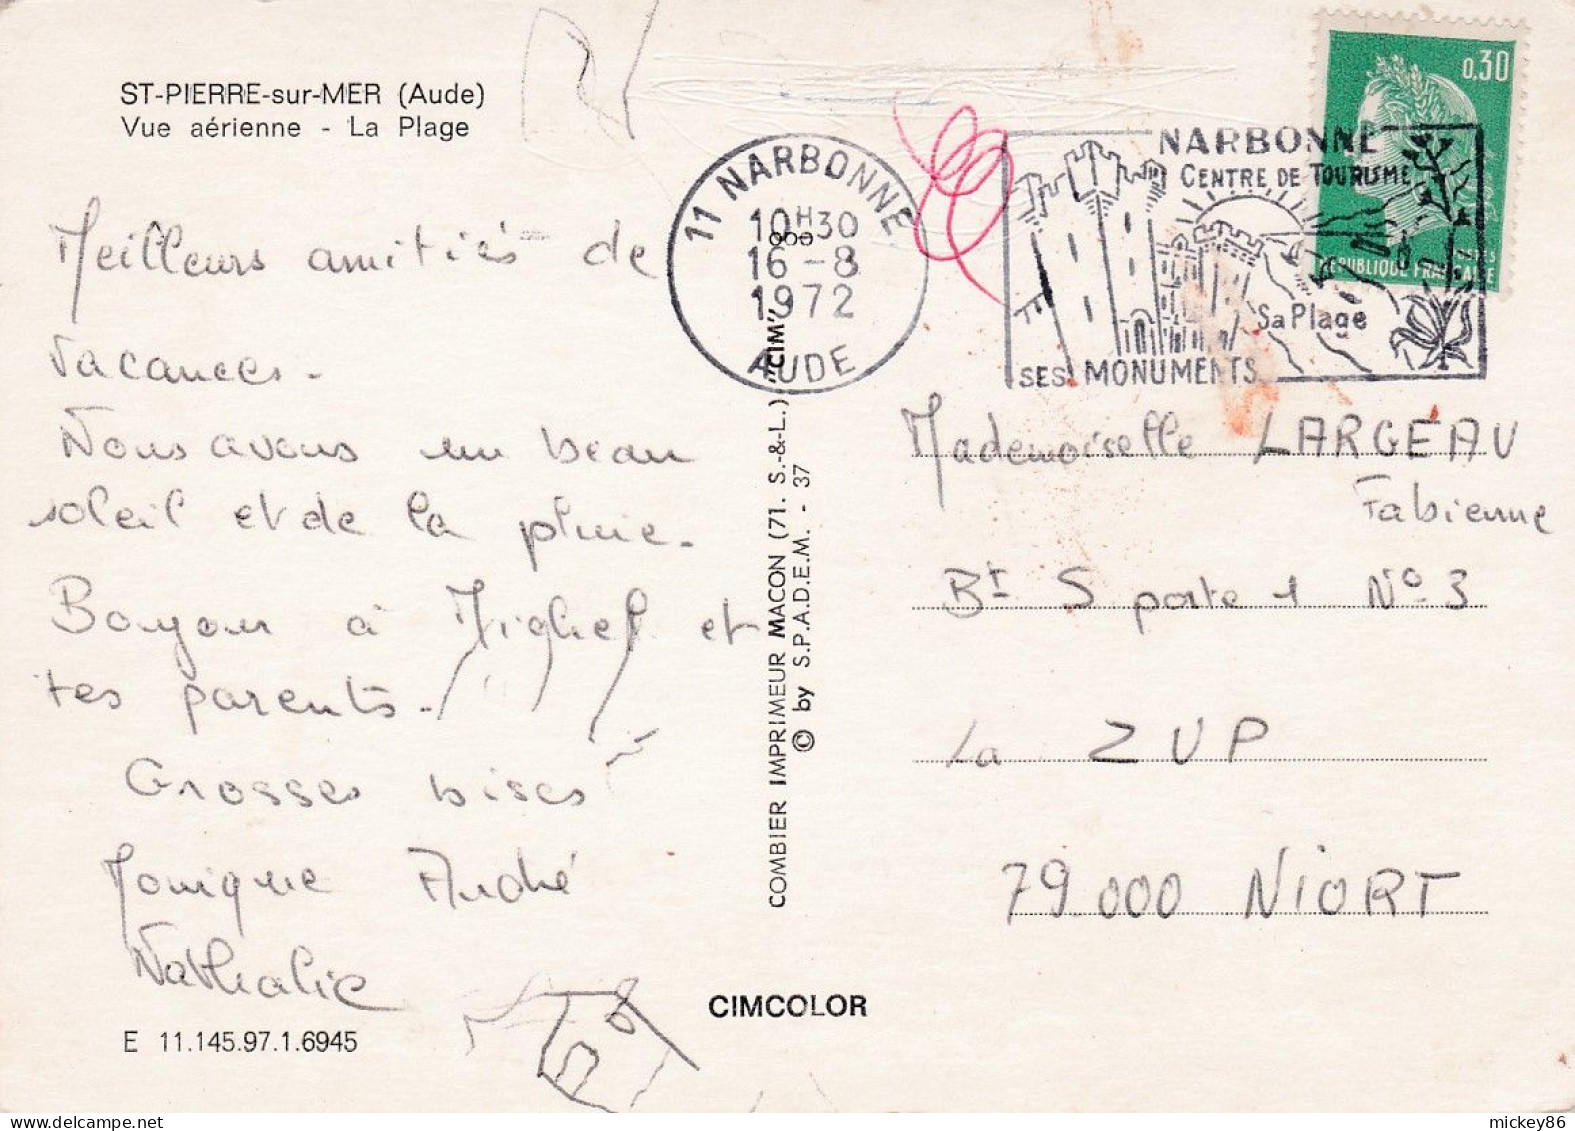 ST-PIERRE-sur-MER (Aude)
Vue aérienne - La Plage
Meilleurs amitiés de
Vacances.
Nous avons eu un beau
soleil et de la pluie.
Bonjour à Mighel et
tes parents.
Grosses bises
Monique André
Nathalie
E 11.145.97.1.6945
11 NARBONNE
10H30
16-8
1972
AUDE
NARBONNE
CENTRE DE TOURISME
Sa Plage
SES MONUMENTS
0,30
REPUBLIQUE FRANCAISE
COMBIER IMPRIMEUR MACON (71. S.-&-L.) "CIM"
© by S.P.A.D.E.M. - 37
CIMCOLOR
Mademoiselle LARGEAU
Fabienne
Bt S porte 1 N° 3
La ZUP
79.000 NIORT
mickey86